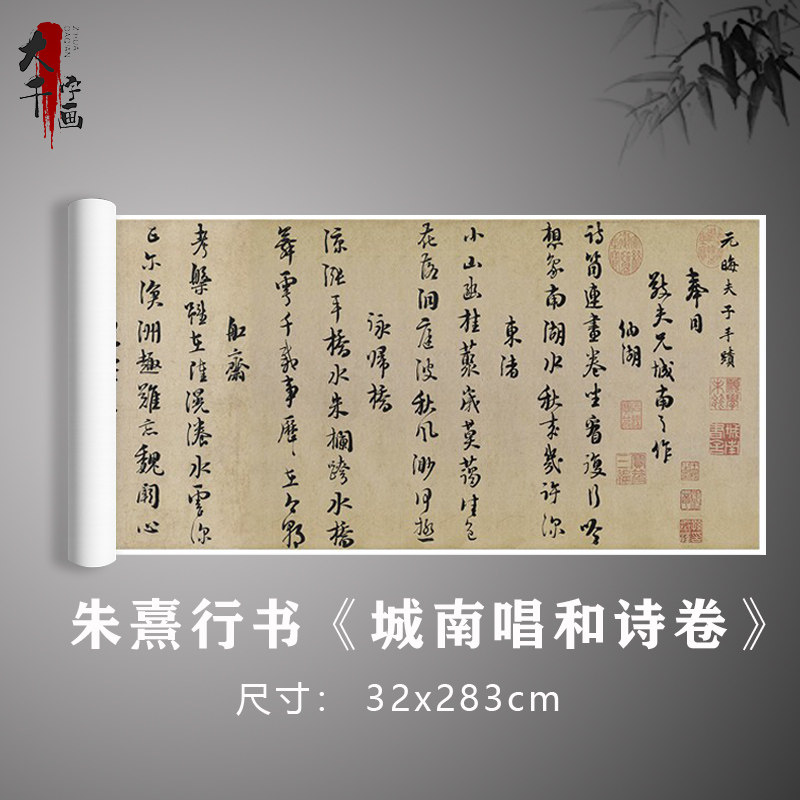 大千字画
元晦夫子手蹟
奉同
敬夫兄城南之作
納湖
詩筒連畫卷坐看復行吟
想象南湖水秋來幾許深
東渚
小山幽桂叢歲莫藹佳色
花落洞庭波秋風渺何極
詠歸橋
綠漲平橋水朱欄跨水橋
舞雩千載事歷歷在今朝
船齋
考槃雖在陸滉瀁水雲深
正爾滄洲趣難忘魏闕心
朱熹行书《城南唱和诗卷》
尺寸： 32x283cm